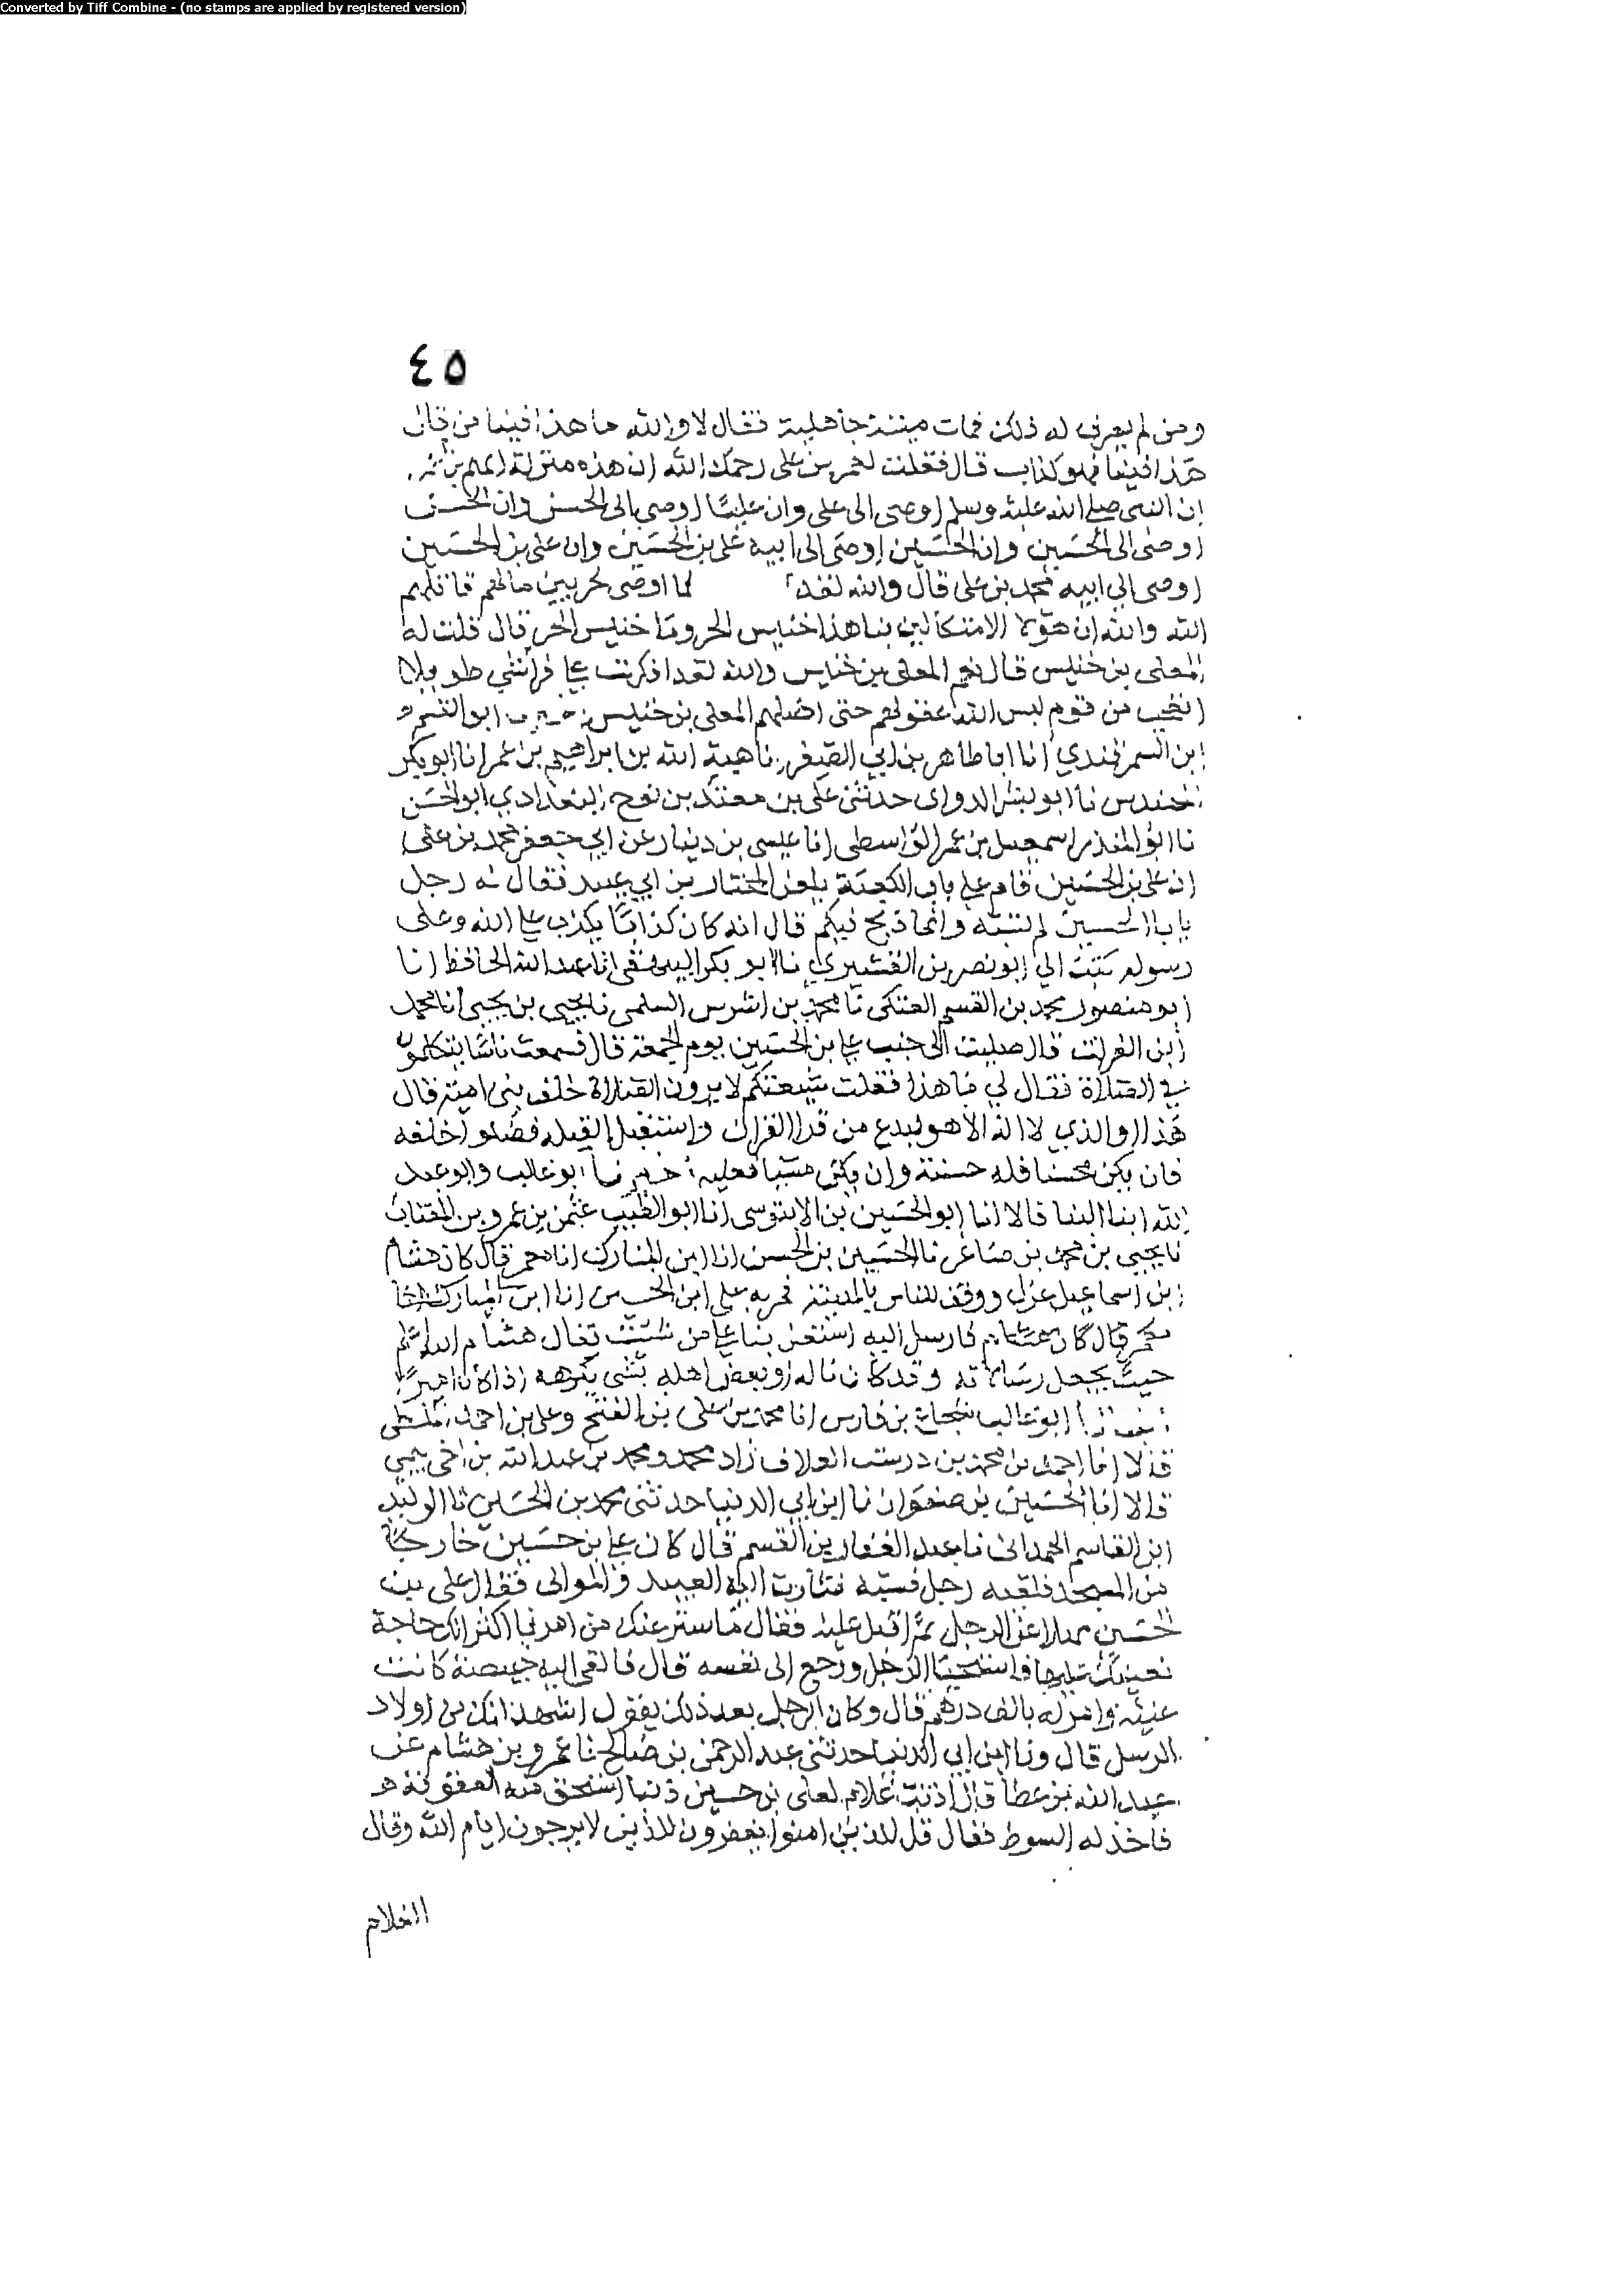 Converted by Tiff Combine - (no stamps are applied by registered version)
٤٥
ومن لم يعرف له ذلك فمات ميتة جاهلية فقال لا والله ما هذا فينا من قال
هذا فينا فهو كذاب قال فقلت لعمر بن على رحمك الله ان هذه منزلة
ان النبى صلى الله عليه وسلم اوصى الى على وان عليا اوصى الى الحسن وان الحسن
اوصى الى الحسين وان الحسين اوصى الى ابيه على بن الحسين وان على بن الحسين
اوصى الى ابيه محمد بن على قال والله لقد لما اوصى بحرفين ما لهم قاتلهم
الله والله ان هؤلا الا متكالين بنا هذا خنيس الحر وما خنيس الحر قال قلت له
المعلى بن خنيس قال نعم المعلى بن خنيس والله لقد افكرت على فراشى طويلا
اتعجب من قوم لبس الله عقولهم حتى اضلهم المعلى بن خنيس ابو القسم
ابن السمرقندي انا ابا طاهر بن ابي الصقر نا هبة الله بن ابراهيم بن عمر انا ابو بكر
المهندس نا ابو بشر الدولابى حدثنى على بن معبد بن نوح البغدادي ابو الحسن
نا ابو المنذر اسمعيل بن عمر الواسطى انا عيسى بن دينار عن ابي جعفر محمد بن على
ان على بن الحسين قام على باب الكعبة يلعن المختار بن ابي عبيد فقال له رجل
يابا الحسين لم تسبه وانما ذبح فيكم قال انه كان كذابا يكذب على الله وعلى
رسوله كتب الي ابو نصر بن القشيري نا ابو بكر البيهقى انا عبد الله الحافظ انا
ابو منصور محمد بن القسم العتكى نا محمد بن اشرس السلمى نا يحيى بن يحيى انا محمد
ابن الفرات قال صليت الى جنب على بن الحسين يوم الجمعة قال فسمعت ناسا يتكلمون
في الصلاة فقال لي ما هذا فقلت شيعتكم لا يرون الصلاة خلف بنى امية قال
هذا والذي لا اله الا هو لبدع من قرا القران واستقبل القبلة فصلوا خلفه
فان يكن محسنا فله حسنة وان يكن مسيا فعليه اخبرنا ابو غالب وابو عبد
الله ابنا البنا قالا انا ابو الحسين بن الابنوسى انا ابو الطيب عثمن بن عمرو بن المنتاب
نا يحيى بن محمد بن صاعد نا الحسين بن الحسن انا ابن المبارك انا معمر قال كان هشام
ابن اسماعيل عزل ووقف للناس بالمدينة فمر به على ابن الحسين انا ابن المبارك انا
معمر قال كان هشام فارسل اليه استعن بنا على من شيت فقال هشام الله اعلم
حيث يجعل رسالاته وقد كان ناله او بعض اهله بشى يكرهه اذ كان اميرا
ابو غالب شجاع بن فارس انا محمد بن على بن الفتح وعلى بن احمد الملطى
قالا انا احمد بن محمد بن درست العلاف زاد محمد ومحمد بن عبد الله بن اخى ميمي
قالا انا الحسين بن صفوان نا ابن ابي الدنيا حدثنى محمد بن الحسين نا الوليد
ابن القاسم الهمدانى نا عبد الغفار بن القسم قال كان على بن حسين خارجا
من المسجد فلقيه رجل فسبه فثارت اليه العبيد والموالى فقال على بن
الحسين مهلا عن الرجل ثم اقبل عليه فقال ما ستر عنك من امرنا اكثر الك حاجة
نعينك عليها فاستحيا الرجل ورجع الى نفسه قال فالقى اليه خميصة كانت
عليه وامر له بالف درهم قال وكان الرجل بعد ذلك يقول اشهد انك من اولاد
الرسل قال ونا ابن ابي الدنيا حدثنى عبد الرحمن بن صالح نا عمرو بن هشام عن
عبد الله بن عطا قال اذنب غلام لعلى بن حسين ذنبا استحق منه العقوبة
فاخذ له السوط فقال قل للذين امنوا يغفروا للذين لا يرجون ايام الله وقال
الغلام